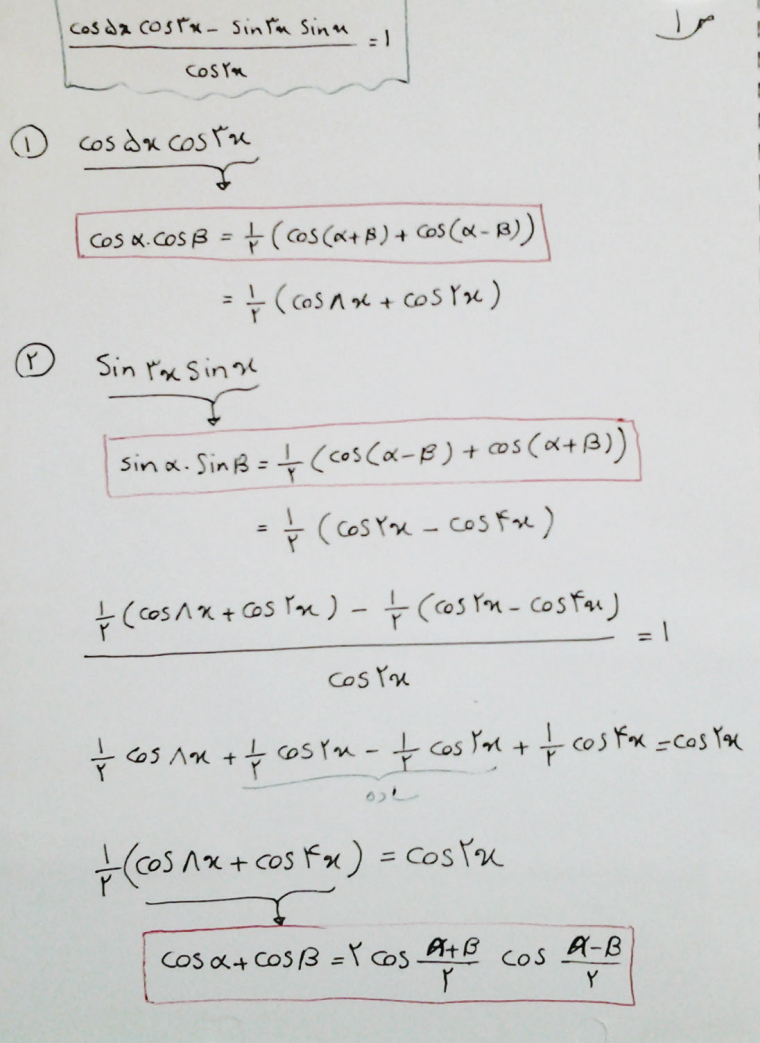 ص ۱
(cos ۵x cos ۳x − sin ۳x sin x) / cos ۲x = ۱
① cos ۵x cos ۳x
cos α . cos β = ۱/۲ (cos(α+β) + cos(α−β))
= ۱/۲ (cos ۸x + cos ۲x)
② sin ۳x sin x
sin α . sin β = ۱/۲ (cos(α−β) + cos(α+β))
= ۱/۲ (cos ۲x − cos ۴x)
(۱/۲ (cos ۸x + cos ۲x) − ۱/۲ (cos ۲x − cos ۴x)) / cos ۲x = ۱
۱/۲ cos ۸x + ۱/۲ cos ۲x − ۱/۲ cos ۲x + ۱/۲ cos ۴x = cos ۲x
ساده
۱/۲ (cos ۸x + cos ۴x) = cos ۲x
cos α + cos β = ۲ cos (α+β)/۲ cos (α−β)/۲